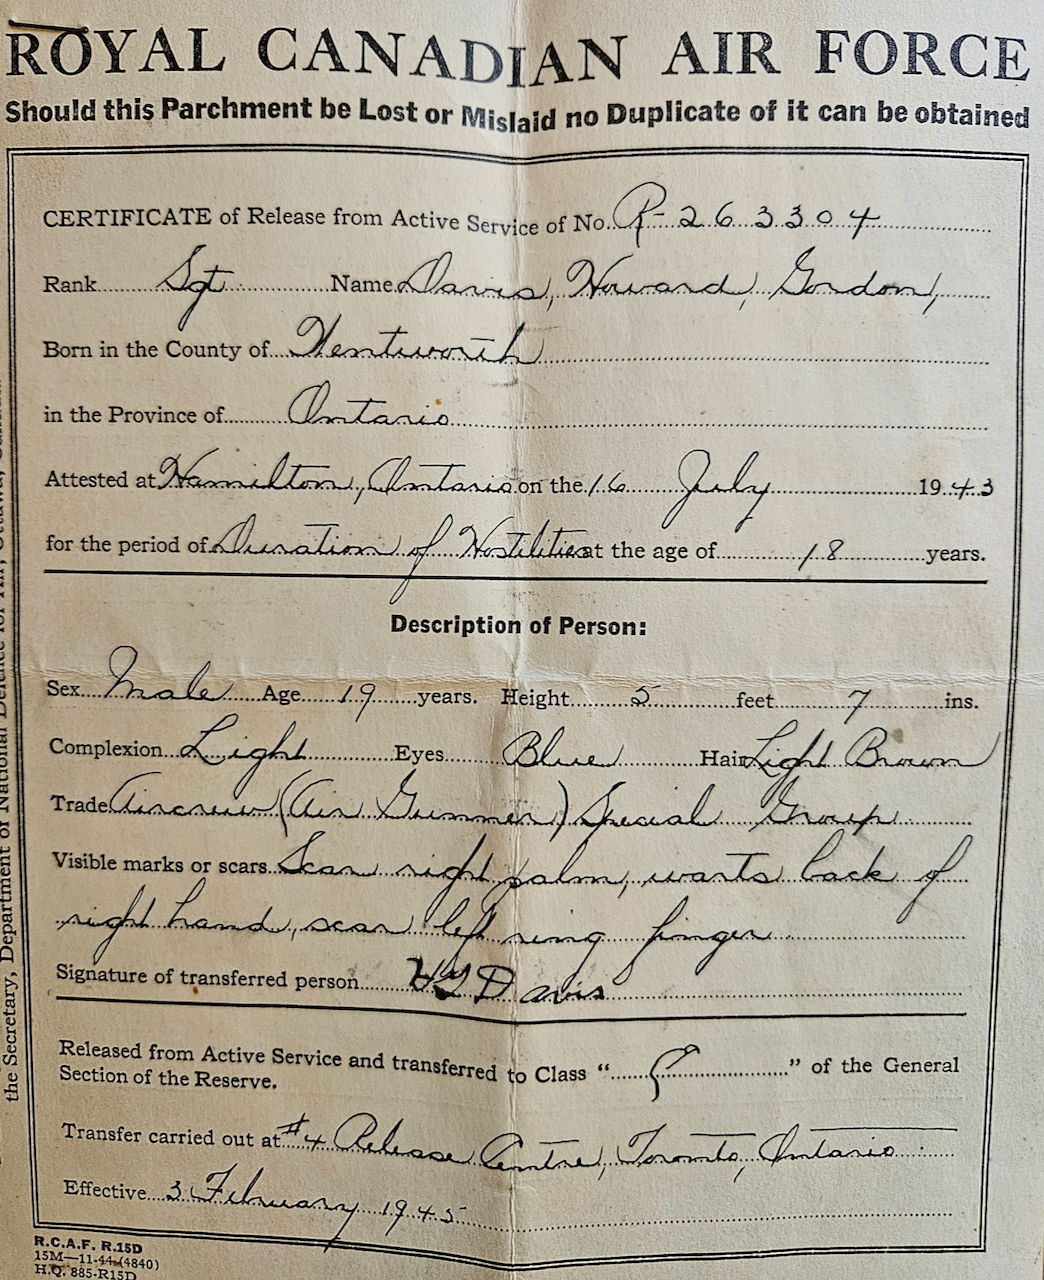 ROYAL CANADIAN AIR FORCE
Should this Parchment be Lost or Mislaid no Duplicate of it can be obtained
CERTIFICATE of Release from Active Service of No. R-263304
Rank Sgt Name Davis, Howard, Gordon,
Born in the County of Wentworth
in the Province of Ontario
Attested at Hamilton, Ontario on the 16 July 1943
for the period of Duration of Hostilities at the age of 18 years.
Description of Person:
Sex Male Age 19 years. Height 5 feet 7 ins.
Complexion Light Eyes Blue Hair Light Brown
Trade Aircrew (Air Gunner) Special Group
Visible marks or scars Scar right palm, warts back of
right hand, scar left ring finger
Signature of transferred person HG Davis
Released from Active Service and transferred to Class "E" of the General
Section of the Reserve.
Transfer carried out at #4 Release Centre, Toronto, Ontario
Effective 3 February 1945
R.C.A.F. R.15D
15M—11-44 (4840)
H.Q. 885-R15D
the Secretary, Department of National Defence for Air, Ottawa,